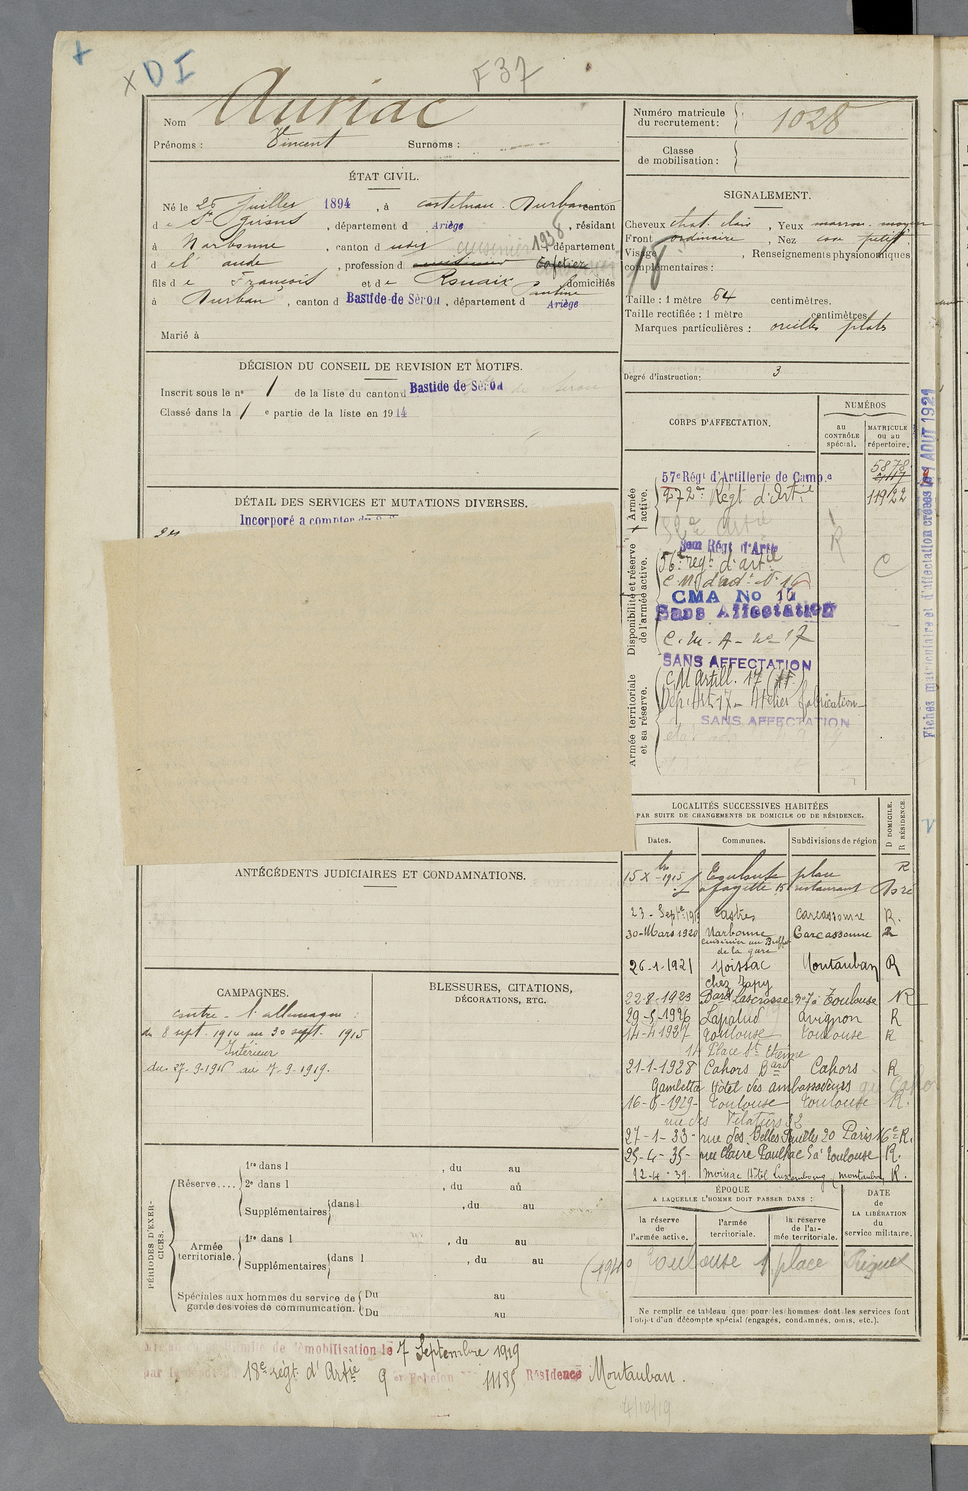 X D I
F 37
Nom Auriac
Prénoms : Vincent Surnoms :
ÉTAT CIVIL.
Né le 25 juillet 1894, à castelnau Durban canton
d e St Girons, département d Ariège, résidant
à Narbonne, canton d cuisinier 1938, département
d e l'aude, profession d Cafetier
fils d e François et d e Rouaix Pauline domiciliés
à Durban, canton d Bastide-de Sérou, département d Ariège
Marié à
DÉCISION DU CONSEIL DE REVISION ET MOTIFS.
Inscrit sous le nº 1 de la liste du canton d Bastide de Sérou
Classé dans la 1 e partie de la liste en 1914
DÉTAIL DES SERVICES ET MUTATIONS DIVERSES.
Incorporé a compter du
ANTÉCÉDENTS JUDICIAIRES ET CONDAMNATIONS.
CAMPAGNES.
contre l'allemagne :
du 8 sept. 1914 au 30 sept. 1915
Intérieur
du 27-9-1916 au 7-9-1919.
BLESSURES, CITATIONS,
DÉCORATIONS, ETC.
PÉRIODES D'EXERCICES.
Réserve....
1re dans l , du au
2e dans l , du au
Supplémentaires dans l , du au
Armée territoriale.
1re dans l , du au
Supplémentaires dans l , du au
Spéciales aux hommes du service de garde des voies de communication.
Du au
Du au
Numéro matricule
du recrutement : 1028
Classe
de mobilisation :
SIGNALEMENT.
Cheveux chat. clair, Yeux marron moyen
Front ordinaire, Nez cave petit
Visage , Renseignements physionomiques
complémentaires :
18
Taille : 1 mètre 64 centimètres.
Taille rectifiée : 1 mètre centimètres
Marques particulières : oreilles plates
Degré d'instruction: 3
CORPS D'AFFECTATION.
NUMÉROS
au CONTRÔLE spécial.
MATRICULE ou au répertoire.
Armée active.
57e Régt d'Artillerie de Camp.e 5878
272e Régt d'Artie 11922
Disponibilité et réserve de l'armée active.
56e régt d'artie
C. M. d'ad. No 16
CMA No 16
Sans Affectation
C. M. A - no 17
SANS AFFECTATION
Armée territoriale et sa réserve.
C M Artill. 17 (AF)
Dép. Art. 17 - Atelier fabrication
SANS AFFECTATION
R
C
Fiches matriculaire et d'affectation créées le AOUT 1921
LOCALITÉS SUCCESSIVES HABITÉES
PAR SUITE DE CHANGEMENTS DE DOMICILE OU DE RÉSIDENCE.
Dates. Communes. Subdivisions de région D DOMICILE. R RÉSIDENCE.
15 Xbre 1915 Toulouse place R
Lafayette 15 restaurant
23 - Septe 19 Castres Carcassonne R.
30-Mars 1920 Narbonne Carcassonne R
cuisinier au Buffet
de la gare
26-1-1921 Moissac Montauban R
chez Tapy
22-8-1923 Bard Lascrosse 37 à Toulouse R
29-5-1926 Lapalud Avignon R
14-4-1927 Toulouse Toulouse R
14 Place St Etienne
21-1-1928 Cahors Bard Cahors R
Gambetta Hôtel des ambassadeurs
16-6-1929 Toulouse Toulouse R.
rue des Filatiers 32
27-1-33- rue des Belles Feuilles 20 Paris 16e R.
25-4-35- rue Claire Pauilhac 5 à Toulouse R.
12-4-39. Moissac Hôtel Luxembourg (Montauban) R.
ÉPOQUE
A LAQUELLE L'HOMME DOIT PASSER DANS :
DATE DE LA LIBÉRATION du service militaire.
la réserve de l'armée active. l'armée territoriale. la réserve de l'armée territoriale.
(1940 Toulouse 1 place Riquet
Ne remplir ce tableau que pour les hommes dont les services font
l'objet d'un décompte spécial (engagés, condamnés, omis, etc.).
démobilisation le 7 Septembre 1919
18e régt d'Artie 9 e Echelon 11185 Résidence Montauban.
4/10/19